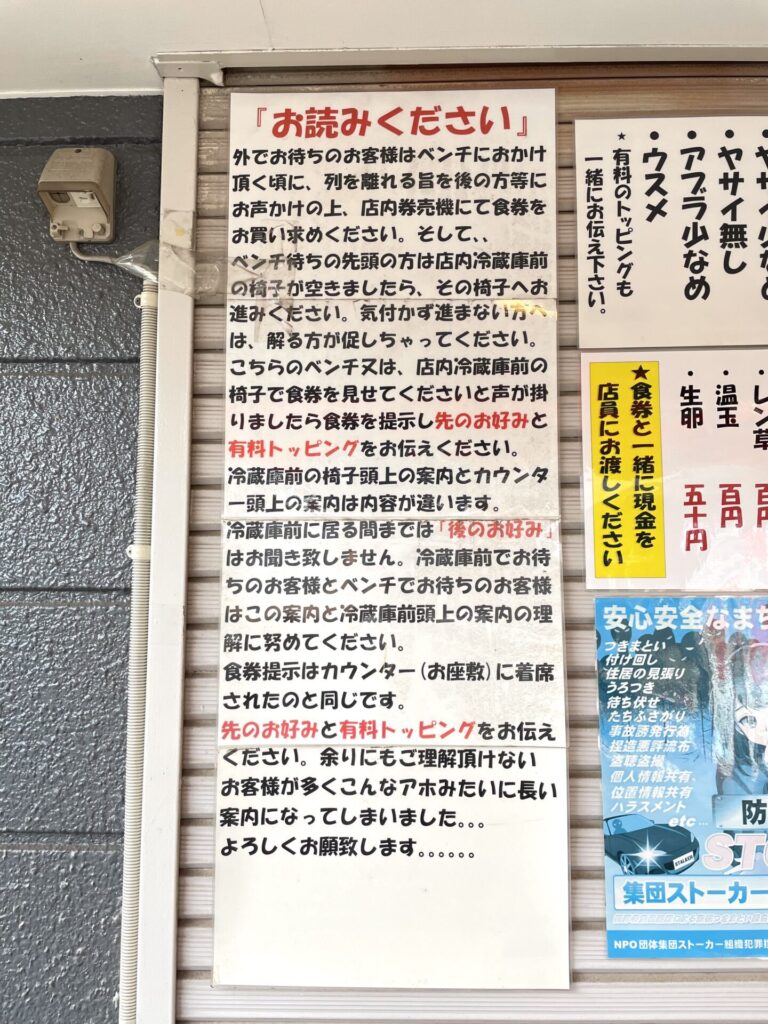 『お読みください』
外でお待ちのお客様はベンチにおかけ
頂く頃に、列を離れる旨を後の方等に
お声かけの上、店内券売機にて食券を
お買い求めください。そして、、
ベンチ待ちの先頭の方は店内冷蔵庫前
の椅子が空きましたら、その椅子へお
進みください。気付かず進まない方へ
は、解る方が促しちゃってください。
こちらのベンチ又は、店内冷蔵庫前の
椅子で食券を見せてくださいと声が掛
りましたら食券を提示し先のお好みと
有料トッピングをお伝えください。
冷蔵庫前の椅子頭上の案内とカウンタ
ー頭上の案内は内容が違います。
冷蔵庫前に居る間までは「後のお好み」
はお聞き致しません。冷蔵庫前でお待
ちのお客様とベンチでお待ちのお客様
はこの案内と冷蔵庫前頭上の案内の理
解に努めてください。
食券提示はカウンター(お座敷)に着席
されたのと同じです。
先のお好みと有料トッピングをお伝え
ください。余りにもご理解頂けない
お客様が多くこんなアホみたいに長い
案内になってしまいました。。。
よろしくお願致します。。。。。。
・ヤサイ無し
・アブラ少なめ
・ウスメ
★有料のトッピングも
一緒にお伝え下さい。
レン草
・温玉 百円
・生卵 五十円
★食券と一緒に現金を
店員にお渡しください
安心安全なまち
つきまとい
付け回し
住居の見張り
うろつき
待ち伏せ
たちふさがり
事故誘発行為
捏造悪評流布
盗聴盗撮
個人情報共有
位置情報共有
ハラスメント
etc...
防
STALKER
集団ストーカー
NPO団体集団ストーカー組織犯罪